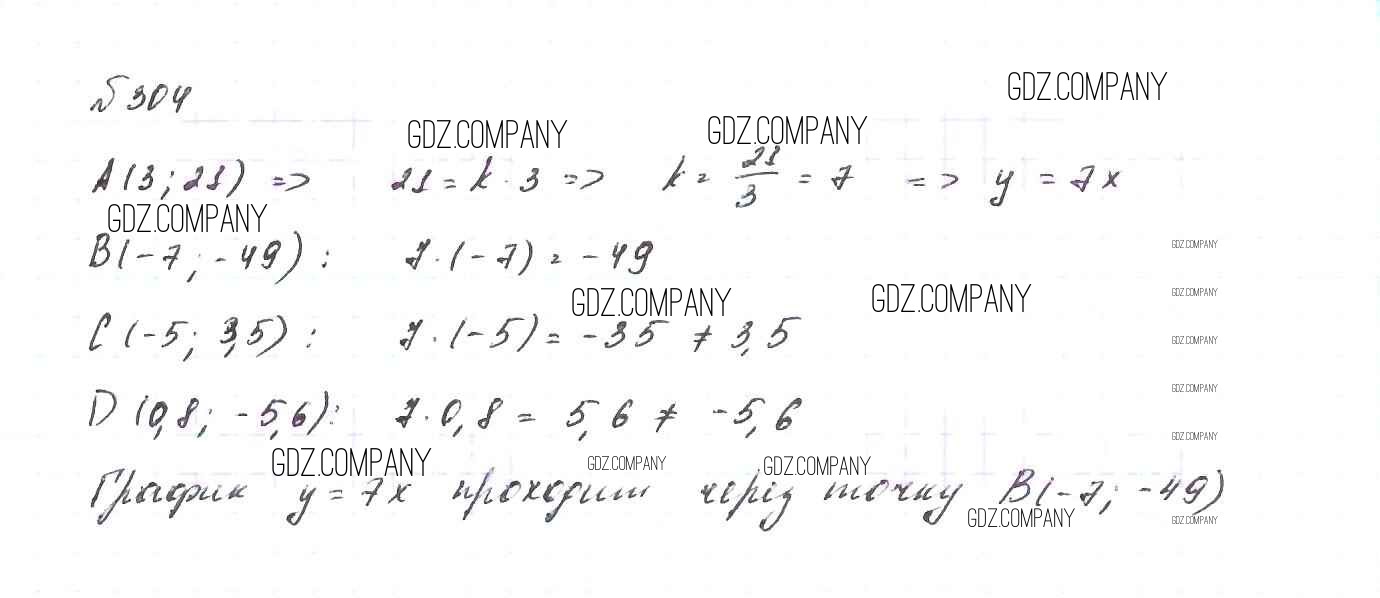 № 304
GDZ.COMPANY
GDZ.COMPANY GDZ.COMPANY
A(3; 21) => 21 = k · 3 => k = 21/3 = 7 => y = 7x
GDZ.COMPANY
B(-7; -49): 7 · (-7) = -49
GDZ.COMPANY
GDZ.COMPANY
GDZ.COMPANY GDZ.COMPANY
C(-5; 3,5): 7 · (-5) = -35 ≠ 3,5
GDZ.COMPANY
GDZ.COMPANY
D(0,8; -5,6): 7 · 0,8 = 5,6 ≠ -5,6
GDZ.COMPANY
GDZ.COMPANY GDZ.COMPANY GDZ.COMPANY
График y = 7x проходит через точку B(-7; -49)
GDZ.COMPANY GDZ.COMPANY